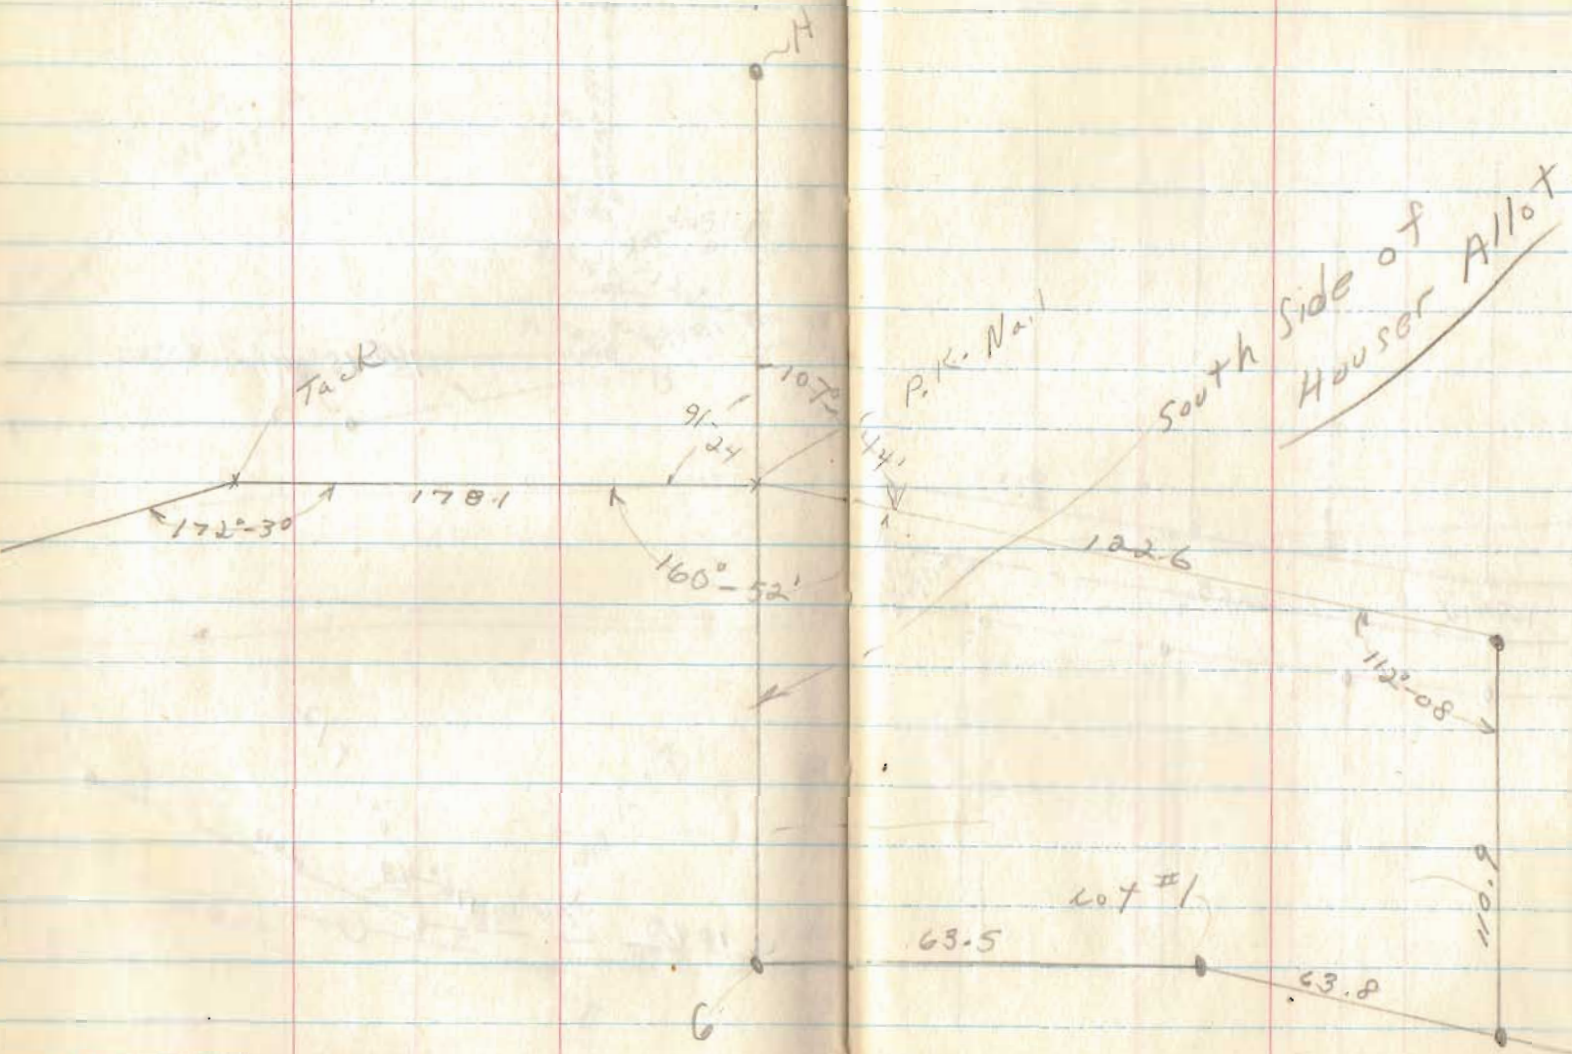 H
Tack
P.K. Nail
South Side of
Houser Allot
107°
44'
91-
24
178.1
172°-30
160°-52'
122.6
112°-08
110.9
Lot #1
63.5
63.8
G